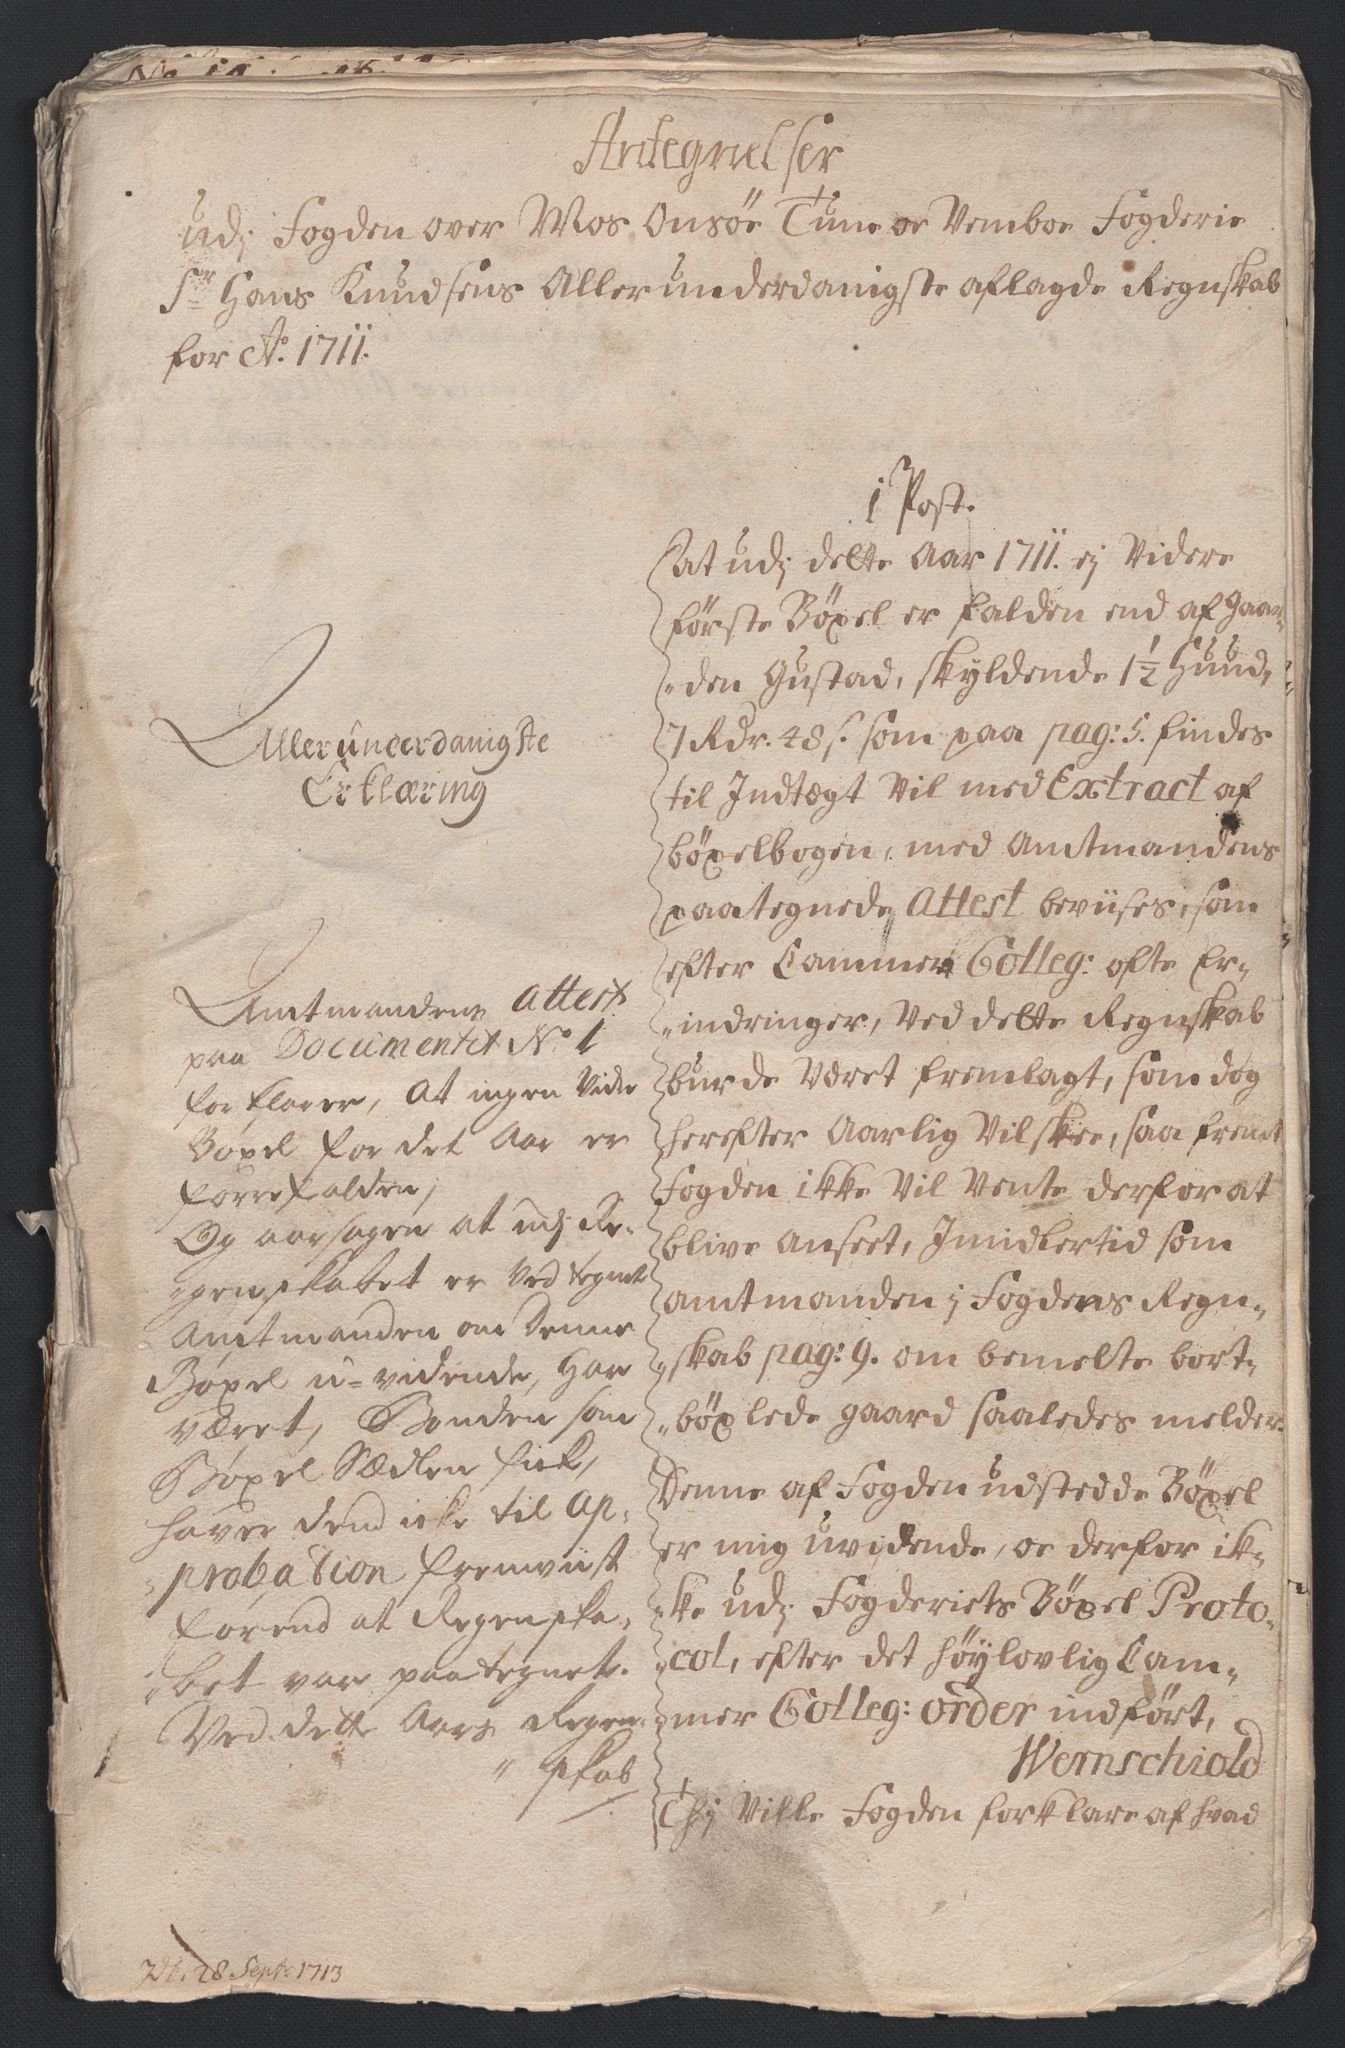 Antegnelser
udj Fogden over Mos Onsöe Tune oc Vemboe Fogderie
Sr Hans Knudsens Allerunderdanigste aflagde Regnskab
for Ao. 1711.
1 Post.
at udj dette Aar 1711. ej Videre
förste Böxel er falden end af gaar-
"den Gustad, skyldende 1½ Hund,
7 Rdr. 48 s. som paa pag: 5. findes
til Indtægt Vil med Extract af
böxelbogen, med Amtmandens
paategnede Attest beviises, som
efter Cammer Colleg: ofte Er-
"indringer, Ved dette Regnskab
burde Været fremlagt, som dog
herefter Aarlig Vil skee, saa fremt
Fogden ikke Vil Vente derfor at
blive Anseet, Imidlertid som
Amtmanden j Fogdens Regn-
"skab pag: 9. om bemelte bort-
"böxlede gaard saaledes melder
Denne af Fogden udstedde Böxel
er mig uvidende, oc derfor ik-
"ke udj Fogderiets Böxel Proto-
"col, efter det höylovlig Cam-
mer Colleg: order indfört,
Wernschiold
Thj Ville Fogden forklare af hvad
Allerunderdanigste
Erklæring
Amtmandens Attest
paa Documentet No. 1
forklarer, At ingen Vider
Böxel for det Aar er
forrefalden,
Og aarsagen at udj Re-
"genskabet er Ved tegnet
Amtmanden om Denne
Böxel u-vidende, Har
været, Bonden som
Böxel Sædlen fick,
haver dend icke til Ap-
"probation fremviist
forend at Regenska-
"bet var paategnet.
Ved dette Aars Regen-
" skab
28 Septr 1713